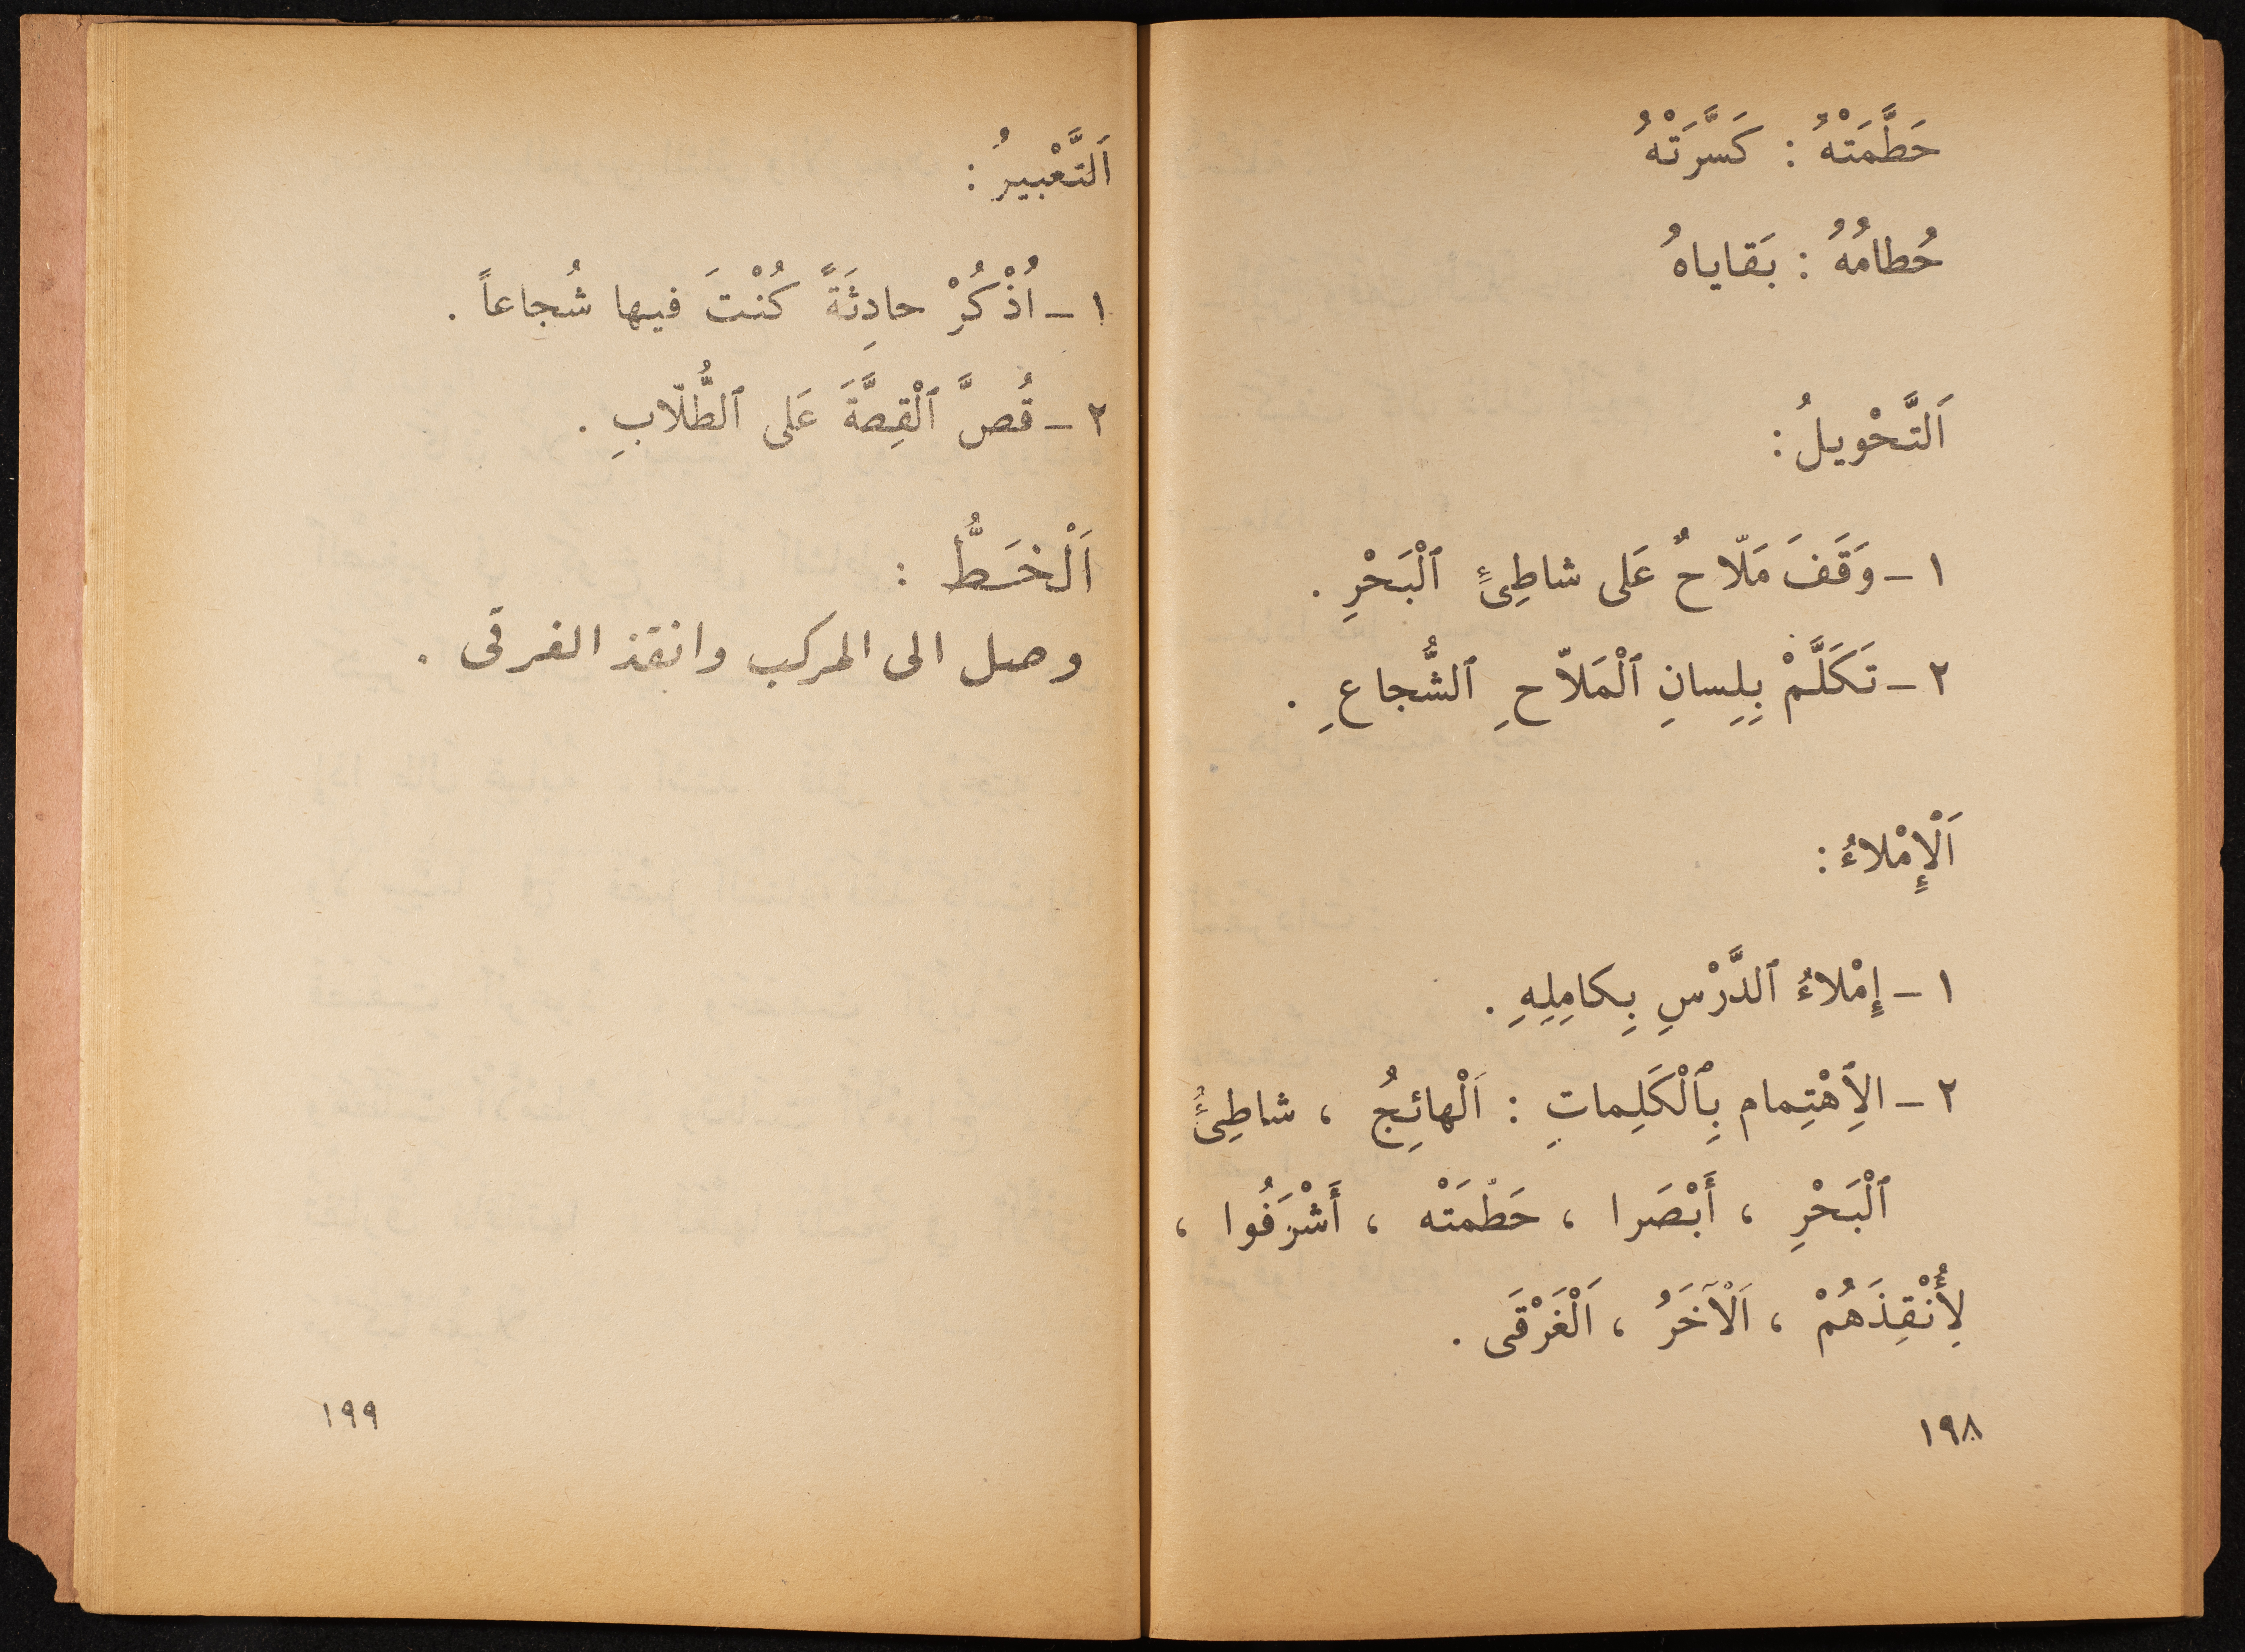 حَطَّمَتْهُ : كَسَّرَتْهُ
حُطامُهُ : بَقاياهُ
اَلتَّحْويلُ :
١ - وَقَفَ مَلّاحٌ عَلى شاطِىءٍ ٱلْبَحْرِ .
٢ - تَكَلَّمْ بِلِسانِ ٱلْمَلاّحِ ٱلشُّجاعِ .
اَلْإِمْلاءُ :
١ - إِمْلاءُ ٱلدَّرْسِ بِكامِلِهِ .
٢ - الِٱهْتِمام بِٱلْكَلِماتِ : اَلْهائِجُ ، شاطِىءُ
ٱلْبَحْرِ ، أَبْصَرا ، حَطْمَتْه ، أَشْرَفُوا ،
لِأُنْقِذَهُمْ ، اَلْآخَرُ ، اَلْغَرْقَى .
١٩٨
اَلتَّعْبيرُ :
١ - اُذْكُرْ حادِثَةً كُنْتَ فيها شُجاعاً .
٢ - قُصَّ ٱلْقِصَّةَ عَلى ٱلطُّلّابِ .
اَلْخَطُّ :
وصل الى المركب وانقذ الغرقى .
١٩٩